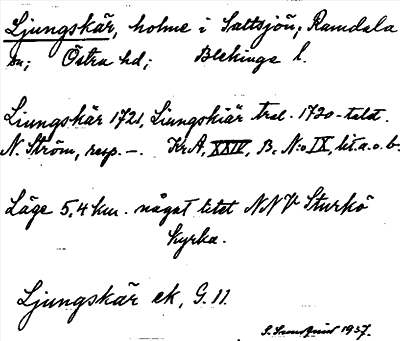 Ljungskär, holme i Saltsjön, Ramdala
sn; Östra hd; Blekinge l.
Liungskär 1721, Liungskiär tral. 1720-talet.
N. Ström, resp. —. Kr.A, XXIV, B. N:o IX, lit. a. o. b.
Läge 5,4 km. något litet NNV Sturkö
kyrka.
Ljungskär ek, G. 11.
1937.